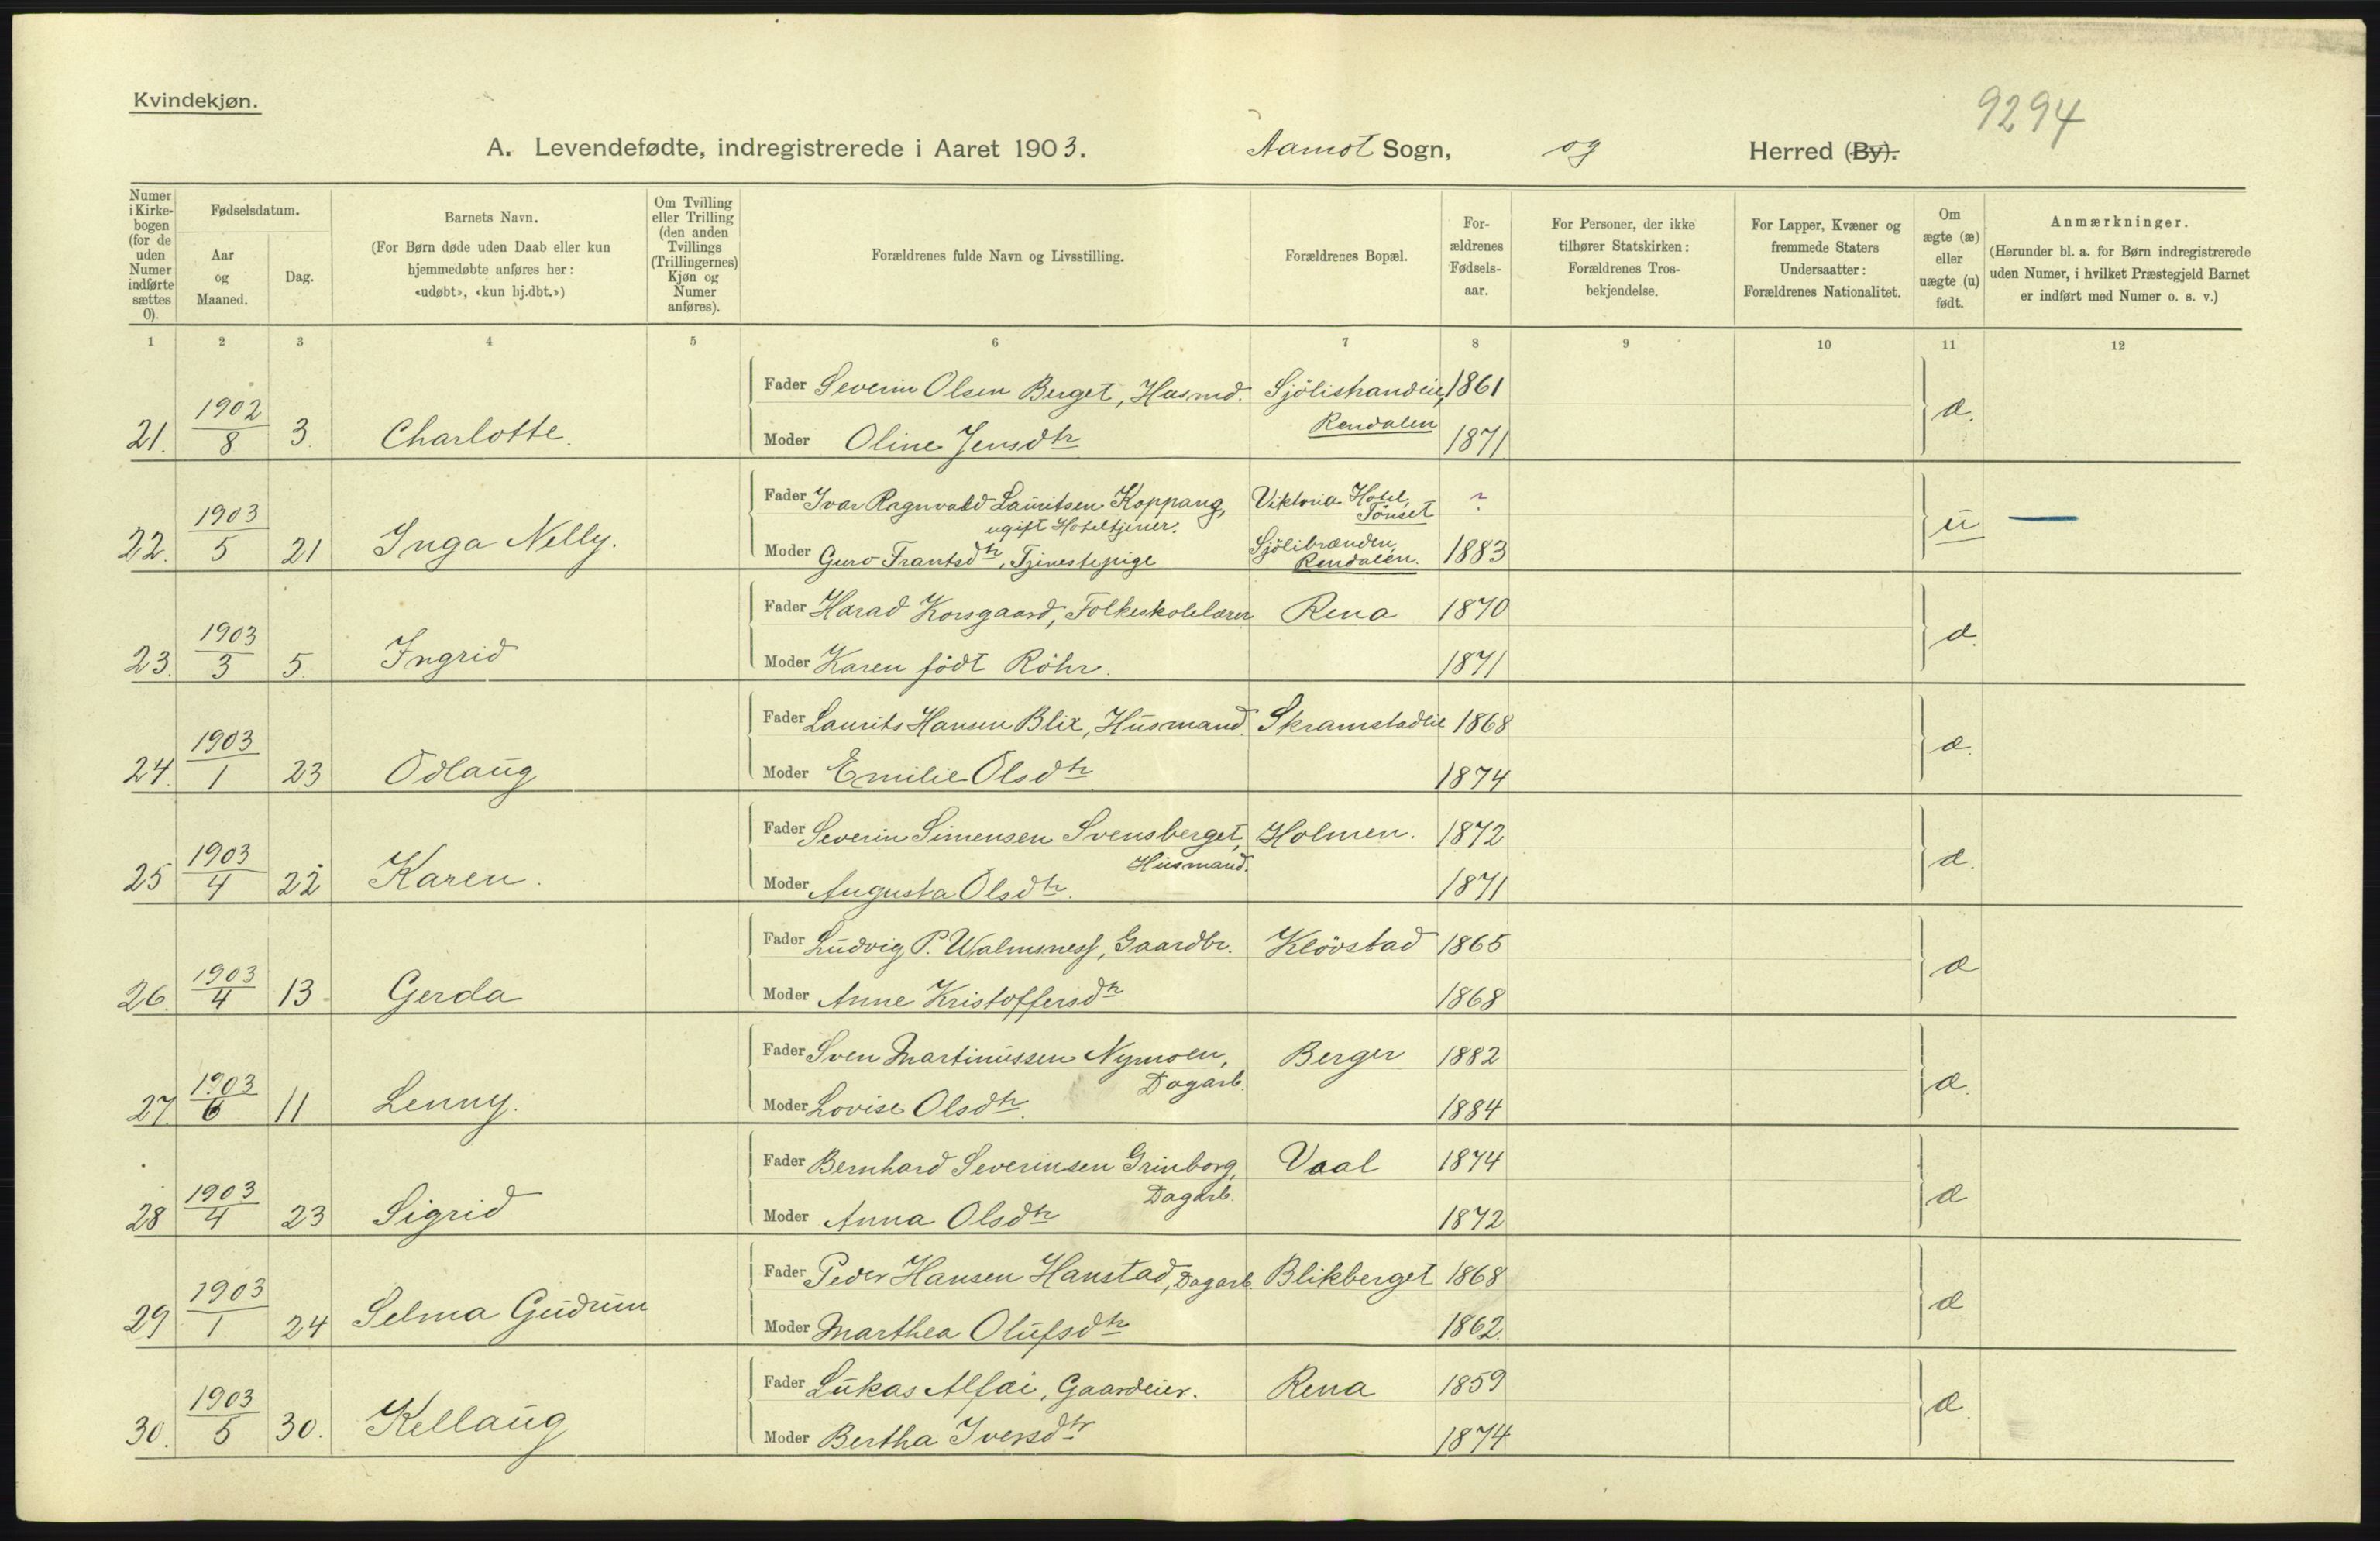 Kvindekjøn.
9294
A. Levendefødte, indregistrerede i Aaret 1903. Aamot Sogn, og Herred (By).
Numer i Kirkebogen (for de uden Numer indførte sættes 0).
Fødselsdatum.
Aar og Maaned.
Dag.
Barnets Navn.
(For Børn døde uden Daab eller kun hjemmedøbte anføres her: «udøbt», «kun hj.dbt.»)
Om Tvilling eller Trilling (den anden Tvillings (Trillingernes) Kjøn og Numer anføres).
Forældrenes fulde Navn og Livsstilling.
Forældrenes Bopæl.
Forældrenes Fødselsaar.
For Personer, der ikke tilhører Statskirken: Forældrenes Trosbekjendelse.
For Lapper, Kvæner og fremmede Staters Undersaatter: Forældrenes Nationalitet.
Om ægte (æ) eller uægte (u) født.
Anmærkninger.
(Herunder bl. a. for Børn indregistrerede uden Numer, i hvilket Præstegjeld Barnet er indført med Numer o. s. v.)
1 2 3 4 5 6 7 8 9 10 11 12
Fader Severin Olsen Berget, Husmd. Sjölistrandeie, 1861
21. 1902/8 3. Charlotte. æ.
Moder Oline Jensdtr Rendalen 1871
Fader Ivar Ragnvald Lauritsen Koppang, Viktoria Hotel, Tönset ?
ugift Hoteltjener.
22. 1903/5 21 Inga Nelly. u —
Moder Guro Frantsdtr, Tjenestepige Sjölibrænden, Rendalen. 1883
Fader Harad Korsgaard, Folkeskolelærer Rena 1870
23. 1903/3 5. Ingrid æ.
Moder Karen födt Röhr. 1871
Fader Laurits Hansen Blix, Husmand. Skramstadeie 1868
24. 1903/1 23 Odlaug æ.
Moder Emilie Olsdtr 1874
Fader Severin Simensen Svensberget, Holmen. 1872
Husmand.
25 1903/4 22 Karen. æ.
Moder Augusta Olsdtr. 1871
Fader Ludvig P. Walmsness, Gaardbr. Klövstad 1865
26. 1903/4 13 Gerda æ
Moder Anne Kristoffersdtr 1868
Fader Sven Martinussen Nymoen, Berger 1882
Dagarb.
27. 1903/6 11 Lenny. æ.
Moder Lovise Olsdtr. 1884
Fader Bernhard Severinsen Grinborg, Vaal 1874
Dagarb.
28 1903/4 23 Sigrid æ
Moder Anna Olsdtr 1872
Fader Peder Hansen Hanstad, Dagarb. Blikberget 1868
29 1903/1 24 Selma Gudrun æ
Moder Marthea Olufsdtr 1862.
Fader Lukas Alfai, Gaardeier. Rena 1859
30. 1903/5 30. Kellaug æ.
Moder Bertha Iversdtr 1874